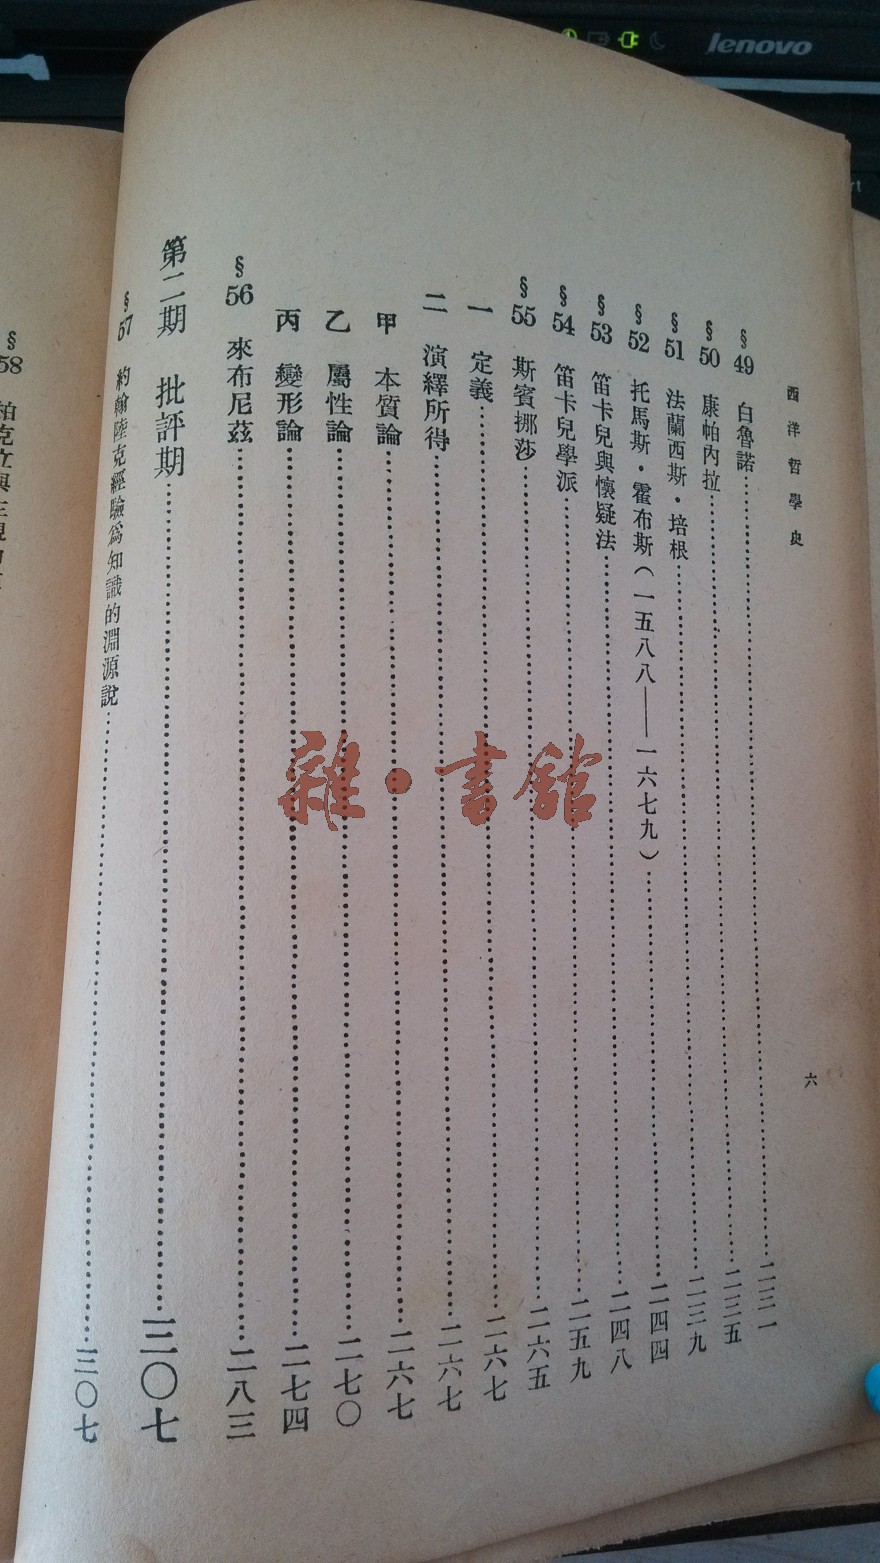 lenovo
西洋哲學史
六
§49 白魯諾……二三一
§50 康帕內拉……二三五
§51 法蘭西斯·培根……二三九
§52 托馬斯·霍布斯(一五八八——一六七九)……二四四
§53 笛卡兒與懷疑法……二四八
§54 笛卡兒學派……二五九
§55 斯賓挪莎……二六五
一 定義……二六七
二 演繹所得……二六七
甲 本質論……二六七
乙 屬性論……二七〇
丙 變形論……二七四
§56 來布尼茲……二八三
第二期 批評期……三〇七
§57 約翰陸克經驗爲知識的淵源說……三〇七
§58 柏克立與主觀
雜·書館